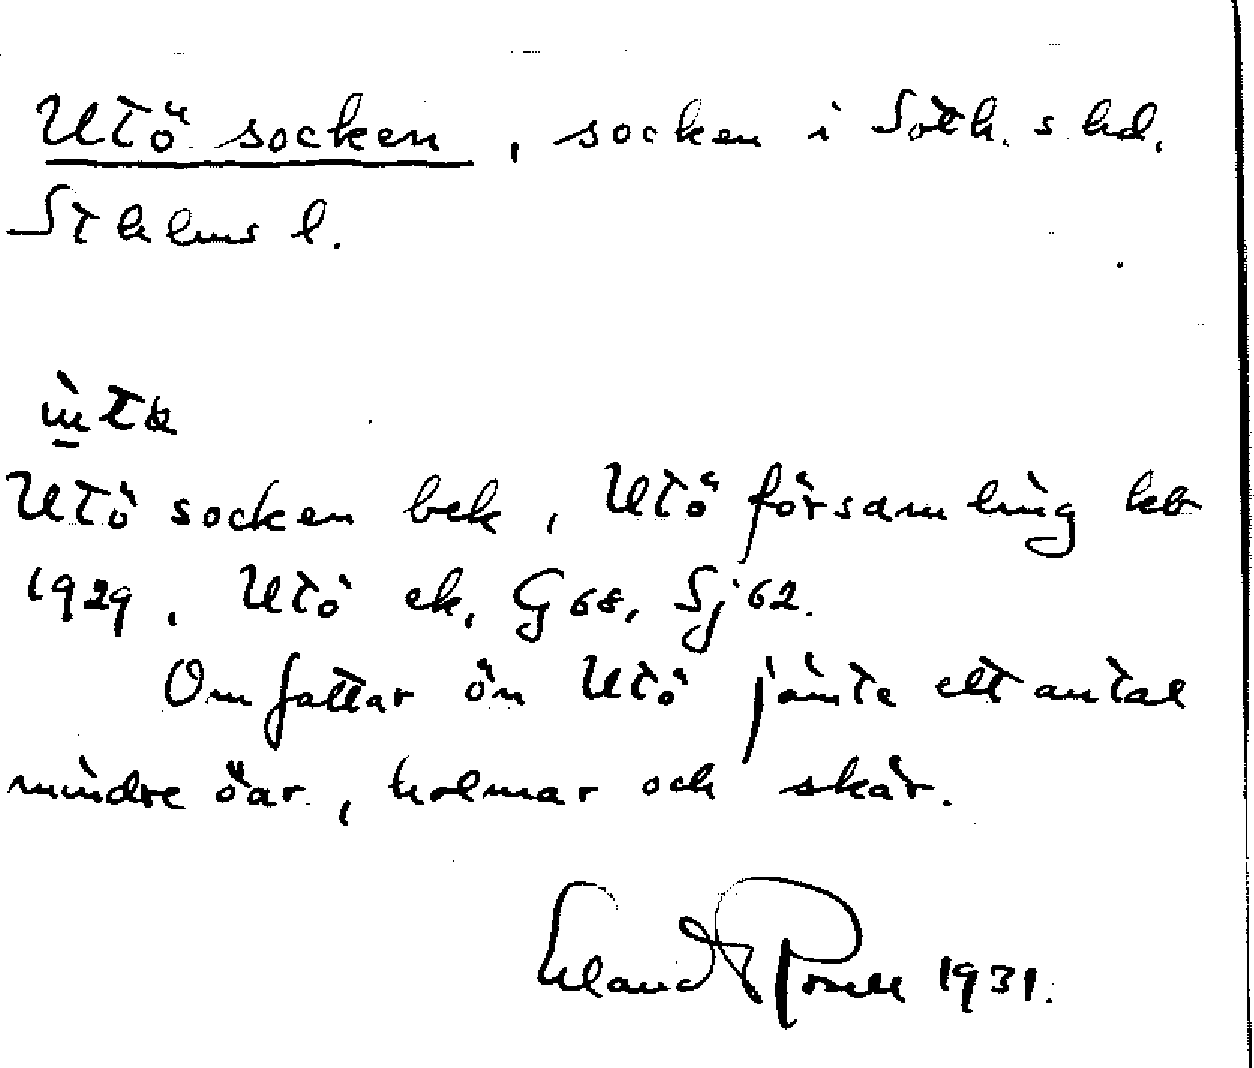 Utö socken, socken i Soth. s hd.
Sthlms l.
Utö socken bek, Utö församling kb
1929. Utö ek. G 68, Sj 62.
Omfattar ön Utö jämte ett antal
mindre öar, holmar och skär.
Erland 1931.